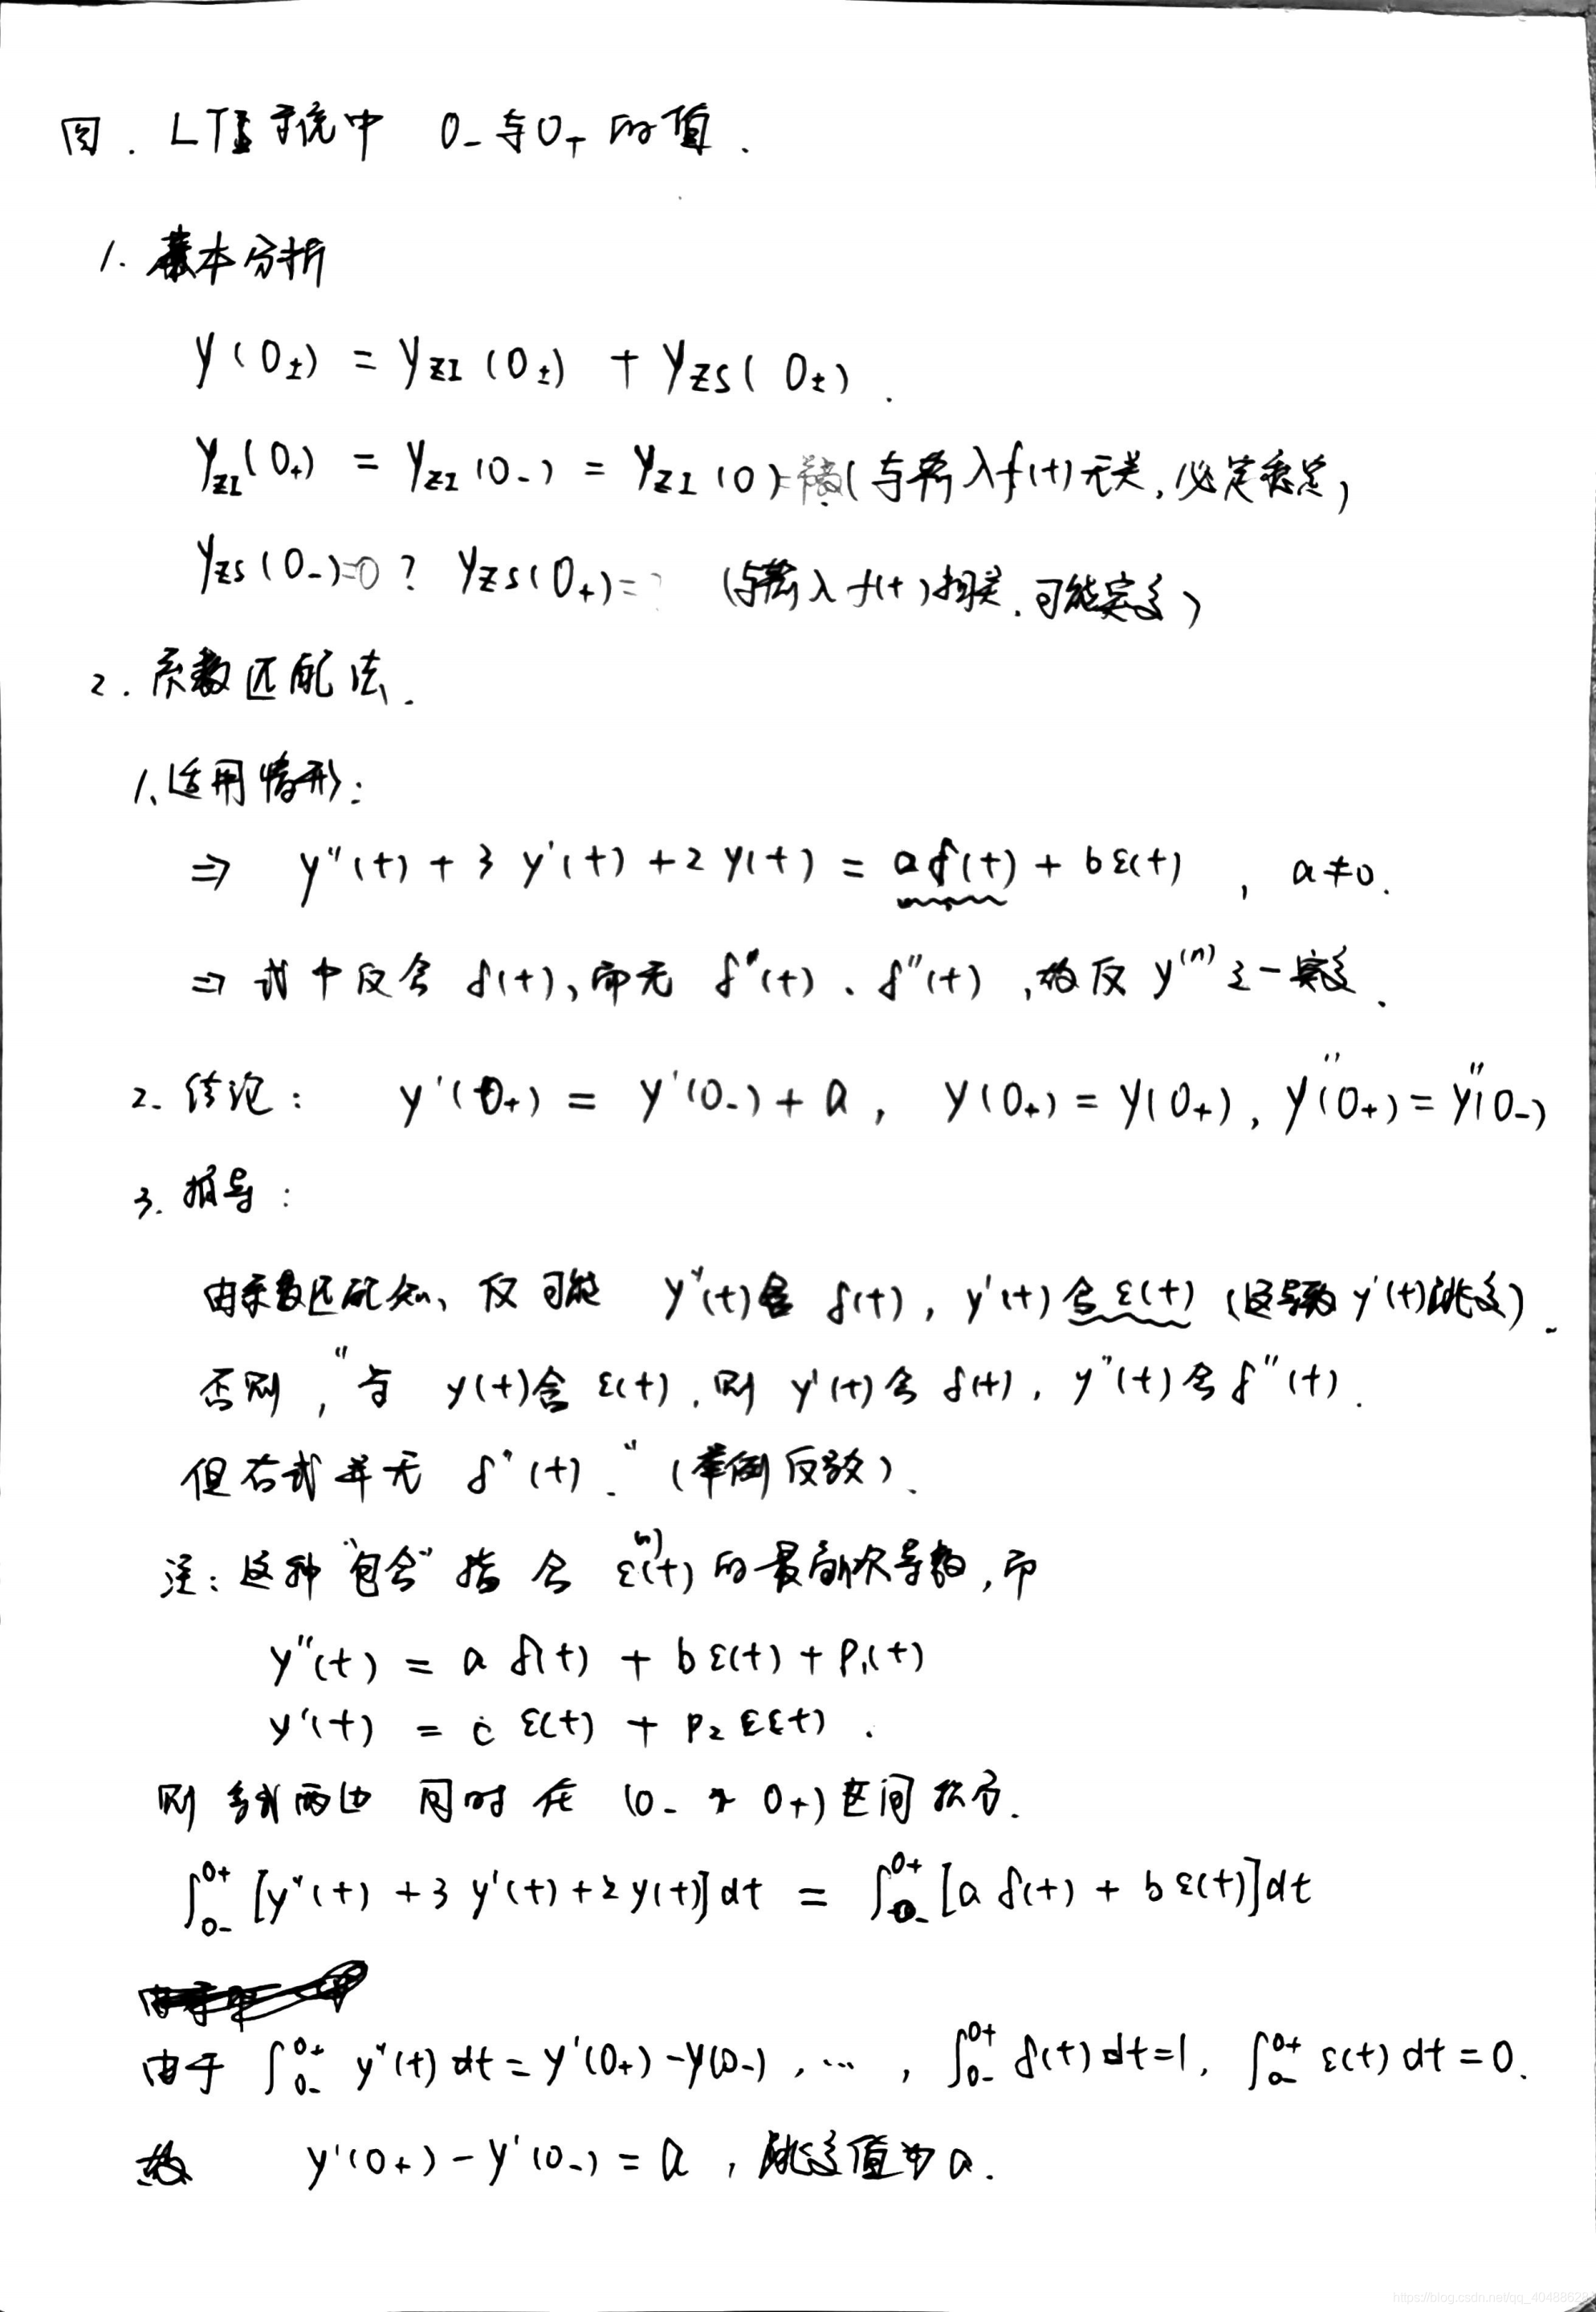 四. LTI系统中 0₋与0₊的值.
1. 基本分析
y(0±) = yZI(0±) + yZS(0±).
yZI(0₊) = yZI(0₋) = yZI(0) (与输入f(t)无关,必定稳定)
yZS(0₋)=0? yZS(0₊)=? (与输入f(t)相关.可能突变)
2. 系数匹配法.
1、适用情形:
⇒ y''(t) + 3y'(t) + 2y(t) = aδ(t) + bε(t) , a≠0.
⇒ 式中仅含 δ(t)、而无 δ'(t)、δ''(t) ,故仅 y⁽ⁿ⁾之一突变.
2. 结论: y'(0₊) = y'(0₋) + a, y(0₊) = y(0₊), y''(0₊) = y''(0₋)
3. 推导:
由系数匹配知、仅可能 y''(t)含 δ(t), y'(t)含ε(t) (这导致y'(t)跳变).
否则,"若 y(t)含 ε(t).则 y'(t)含 δ(t), y''(t)含δ''(t).
但右式并无 δ'(t)." (举例反驳).
注:这种"包含"指含 ε⁽ⁿ⁾(t)的最高次导数,而
y''(t) = a δ(t) + b ε(t) + p₁(t)
y'(t) = c ε(t) + p₂ εεt).
则 等式两边 同时在 (0₋ → 0₊)区间积分.
∫₀₋⁰⁺ [y''(t) + 3y'(t) + 2y(t)]dt = ∫₀₋⁰⁺ [a δ(t) + b ε(t)]dt
由于 ∫₀₋⁰⁺ y''(t) dt = y'(0₊) - y(0₋), …, ∫₀₋⁰⁺ δ(t) dt=1, ∫₀₋⁰⁺ ε(t) dt = 0.
故 y'(0₊) - y'(0₋) = a, 跳变值为a.